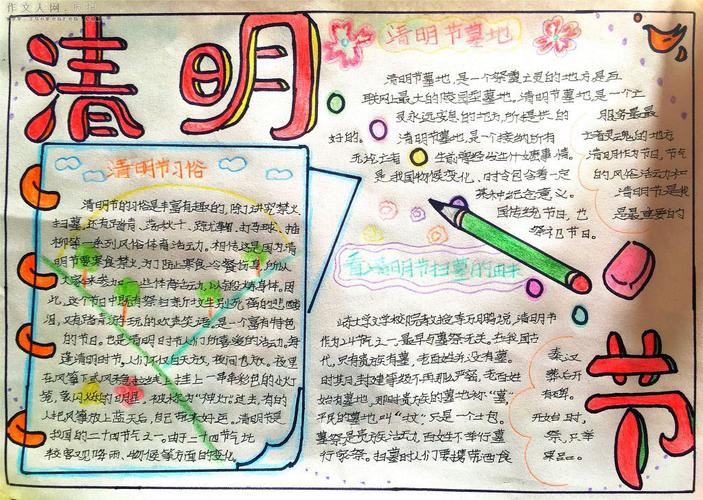 作文人网
清明节
清明节墓地
清明节墓地,是一个祭奠亡灵的地方是互
联网上最大的陵园型墓地。清明节墓地是一个亡
灵永远安息的地方,所提供的服务是最
好的。清明节墓地是一个接纳所有
无论亡者生前曾经发生什么事情。清明作为节日,节气
是我国物候变化、时令
的风俗活动和
某种纪念意义。清明节是我
国传统节日,也是最重要的
祭祀节日。
清明节习俗
清明节的习俗是丰富有趣的,除了讲究禁火、
扫墓,还有踏青、荡秋千、蹴鞠、打马球、插
柳等一系列风俗体育活动。相传这是因为清
明节要寒食禁火,为了防止寒食冷餐伤身,所以
大家来参加一些体育活动,以锻炼身体。因
此,这个节日中既有祭扫新坟生别死离的悲酸
泪,又有踏青游玩的欢声笑语,是一个富有特色
的节日。也是清明时节人们所喜爱的活动。每
逢清明时节,人们不仅白天放,夜间也放。夜里
在风筝下或风稳拉线上挂上一串串彩色的小灯
笼,象闪烁的明星,被称为“神灯”。过去,有的
人把风筝放上蓝天后,自己带来好运。清明节是
我国的二十四节气之一。由于二十四节气比
较客观
降雨、物候等方面的变化
看清明节扫墓的由来
山东大学文学院教授李万鹏说,清明节
作为二十四节气之一,最早与墓祭无关。在我国古
代,只有贵族有墓,老百姓并没有墓。
时期,封建等级不再那么严谨,老百姓
始有墓地,那时贵族的墓地称“墓”,
平民的墓地,叫“坟”,只是一个土包。
墓祭是贵族活动,百姓不举行墓
行家祭。扫墓时人们要携带酒食
秦汉
开始
时,
祭,只举
果品